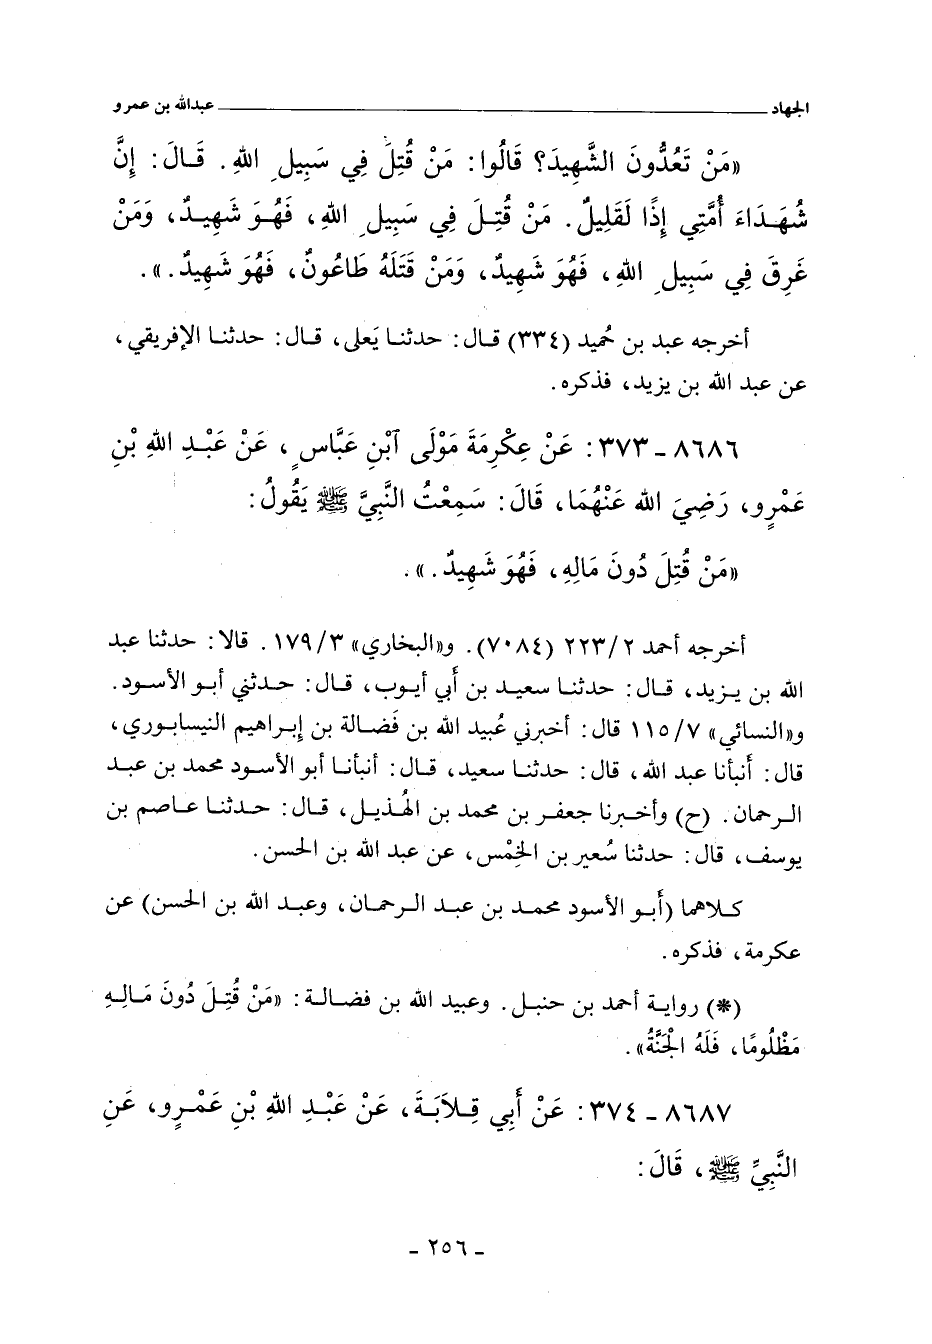 الجهاد ــــــــــــــــــــ عبدالله بن عمرو
«مَنْ تَعُدُّونَ الشَّهِيدَ؟ قَالُوا: مَنْ قُتِلَ فِي سَبِيلِ اللهِ. قَالَ: إِنَّ
شُهَدَاءَ أُمَّتِي إِذًا لَقَلِيلٌ. مَنْ قُتِلَ فِي سَبِيلِ اللهِ، فَهُوَ شَهِيدٌ، وَمَنْ
غَرِقَ فِي سَبِيلِ اللهِ، فَهُوَ شَهِيدٌ، وَمَنْ قَتَلَهُ طَاعُونٌ، فَهُوَ شَهِيدٌ.».
أخرجه عبد بن حُميد (٣٣٤) قال: حدثنا يَعلى، قال: حدثنا الإفريقي،
عن عبد الله بن يزيد، فذكره.
٨٦٨٦ ـ ٣٧٣: عَنْ عِكْرِمَةَ مَوْلَى آبْنِ عَبَّاسٍ، عَنْ عَبْدِ اللهِ بْنِ
عَمْرٍو، رَضِيَ الله عَنْهُمَا، قَالَ: سَمِعْتُ النَّبِيَّ ﷺ يَقُولُ:
«مَنْ قُتِلَ دُونَ مَالِهِ، فَهُوَ شَهِيدٌ.».
أخرجه أحمد ٢/٢٢٣ (٧٠٨٤). و«البخاري» ٣/١٧٩. قالا: حدثنا عبد
الله بن يزيد، قال: حدثنا سعيد بن أبي أيوب، قال: حدثني أبو الأسود.
و«النسائي» ٧/١١٥ قال: أخبرني عُبيد الله بن فَضالة بن إبراهيم النيسابوري،
قال: أنبأنا عبد الله، قال: حدثنا سعيد، قال: أنبأنا أبو الأسود محمد بن عبد
الرحمان. (ح) وأخبرنا جعفر بن محمد بن الهُذيل، قال: حدثنا عاصم بن
يوسف، قال: حدثنا سُعير بن الخِمْس، عن عبد الله بن الحسن.
كلاهما (أبو الأسود محمد بن عبد الرحمان، وعبد الله بن الحسن) عن
عكرمة، فذكره.
(*) رواية أحمد بن حنبل. وعبيد الله بن فضالة: «مَنْ قُتِلَ دُونَ مَالِهِ
مَظْلُومًا، فَلَهُ الْجَنَّةُ».
٨٦٨٧ ـ ٣٧٤: عَنْ أَبِي قِلاَبَةَ، عَنْ عَبْدِ اللهِ بْنِ عَمْرٍو، عَنِ
النَّبِيِّ ﷺ، قَالَ:
ـ ٢٥٦ ـ